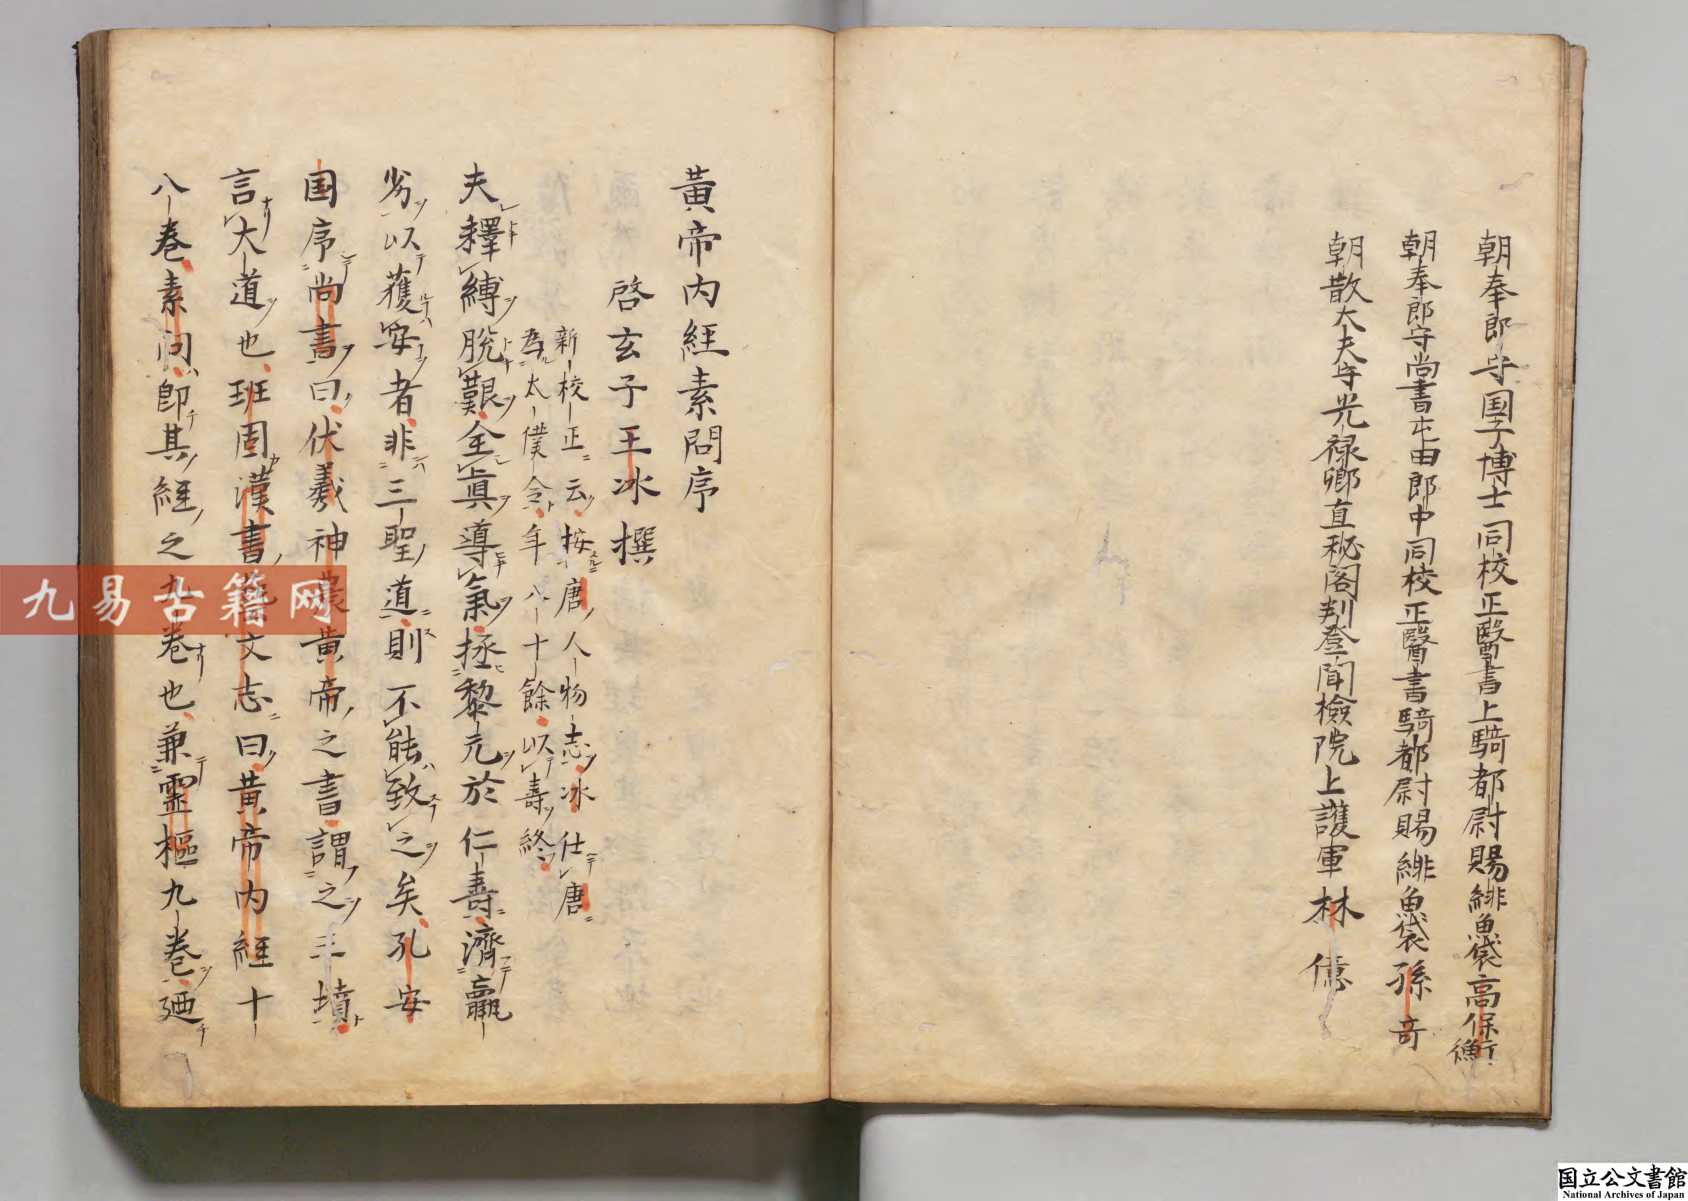 朝奉郎守国子博士同校正醫書上騎都尉賜緋魚袋高保衡
朝奉郎守尚書屯田郎中同校正醫書騎都尉賜緋魚袋孫奇
朝散大夫守光禄卿直秘閣判登聞檢院上護軍林億
黄帝内經素問序
啓玄子王冰撰
新校正云按唐人物志冰仕唐
為太僕令年八十餘以壽終
夫釋縛脱艱全眞導氣拯黎元於仁壽濟羸
劣以獲安者非三聖道則不能致之矣孔安
国序尚書曰伏羲神農黄帝之書謂之三墳
言大道也班固漢書藝文志曰黄帝内經十
八卷素问即其經之九卷也兼靈樞九卷廼
九易古籍网
国立公文書館
National Archives of Japan